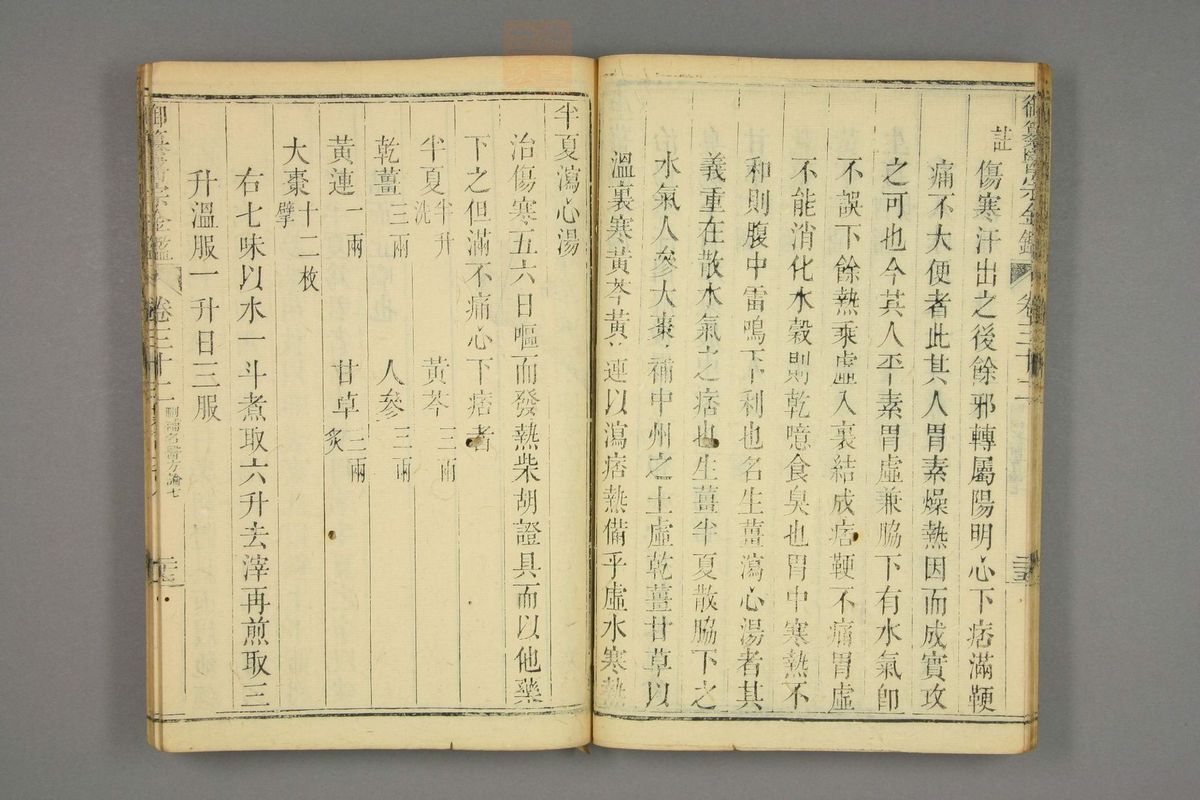 御纂醫宗金鑑 卷三十二
註 傷寒汗出之後餘邪轉屬陽明心下痞滿鞕
痛不大便者此其人胃素燥熱因而成實攻
之可也今其人平素胃虛兼脇下有水氣卽
不誤下餘熱乘虛入裏結成痞鞕不痛胃虛
不能消化水穀則乾噫食臭也胃中寒熱不
和則腹中雷鳴下利也名生薑瀉心湯者其
義重在散水氣之痞也生薑半夏散脇下之
水氣人參大棗補中州之土虛乾薑甘草以
溫裏寒黃芩黃連以瀉痞熱備乎虛水寒熱
半夏瀉心湯
治傷寒五六日嘔而發熱柴胡證具而以他藥
下之但滿不痛心下痞者
半夏半升洗 黃芩三兩
乾薑三兩 人參三兩
黃連一兩 甘草三兩炙
大棗十二枚擘
右七味以水一斗煮取六升去滓再煎取三
升溫服一升日三服
御纂醫宗金鑑 卷三十二 刪補名醫方論七